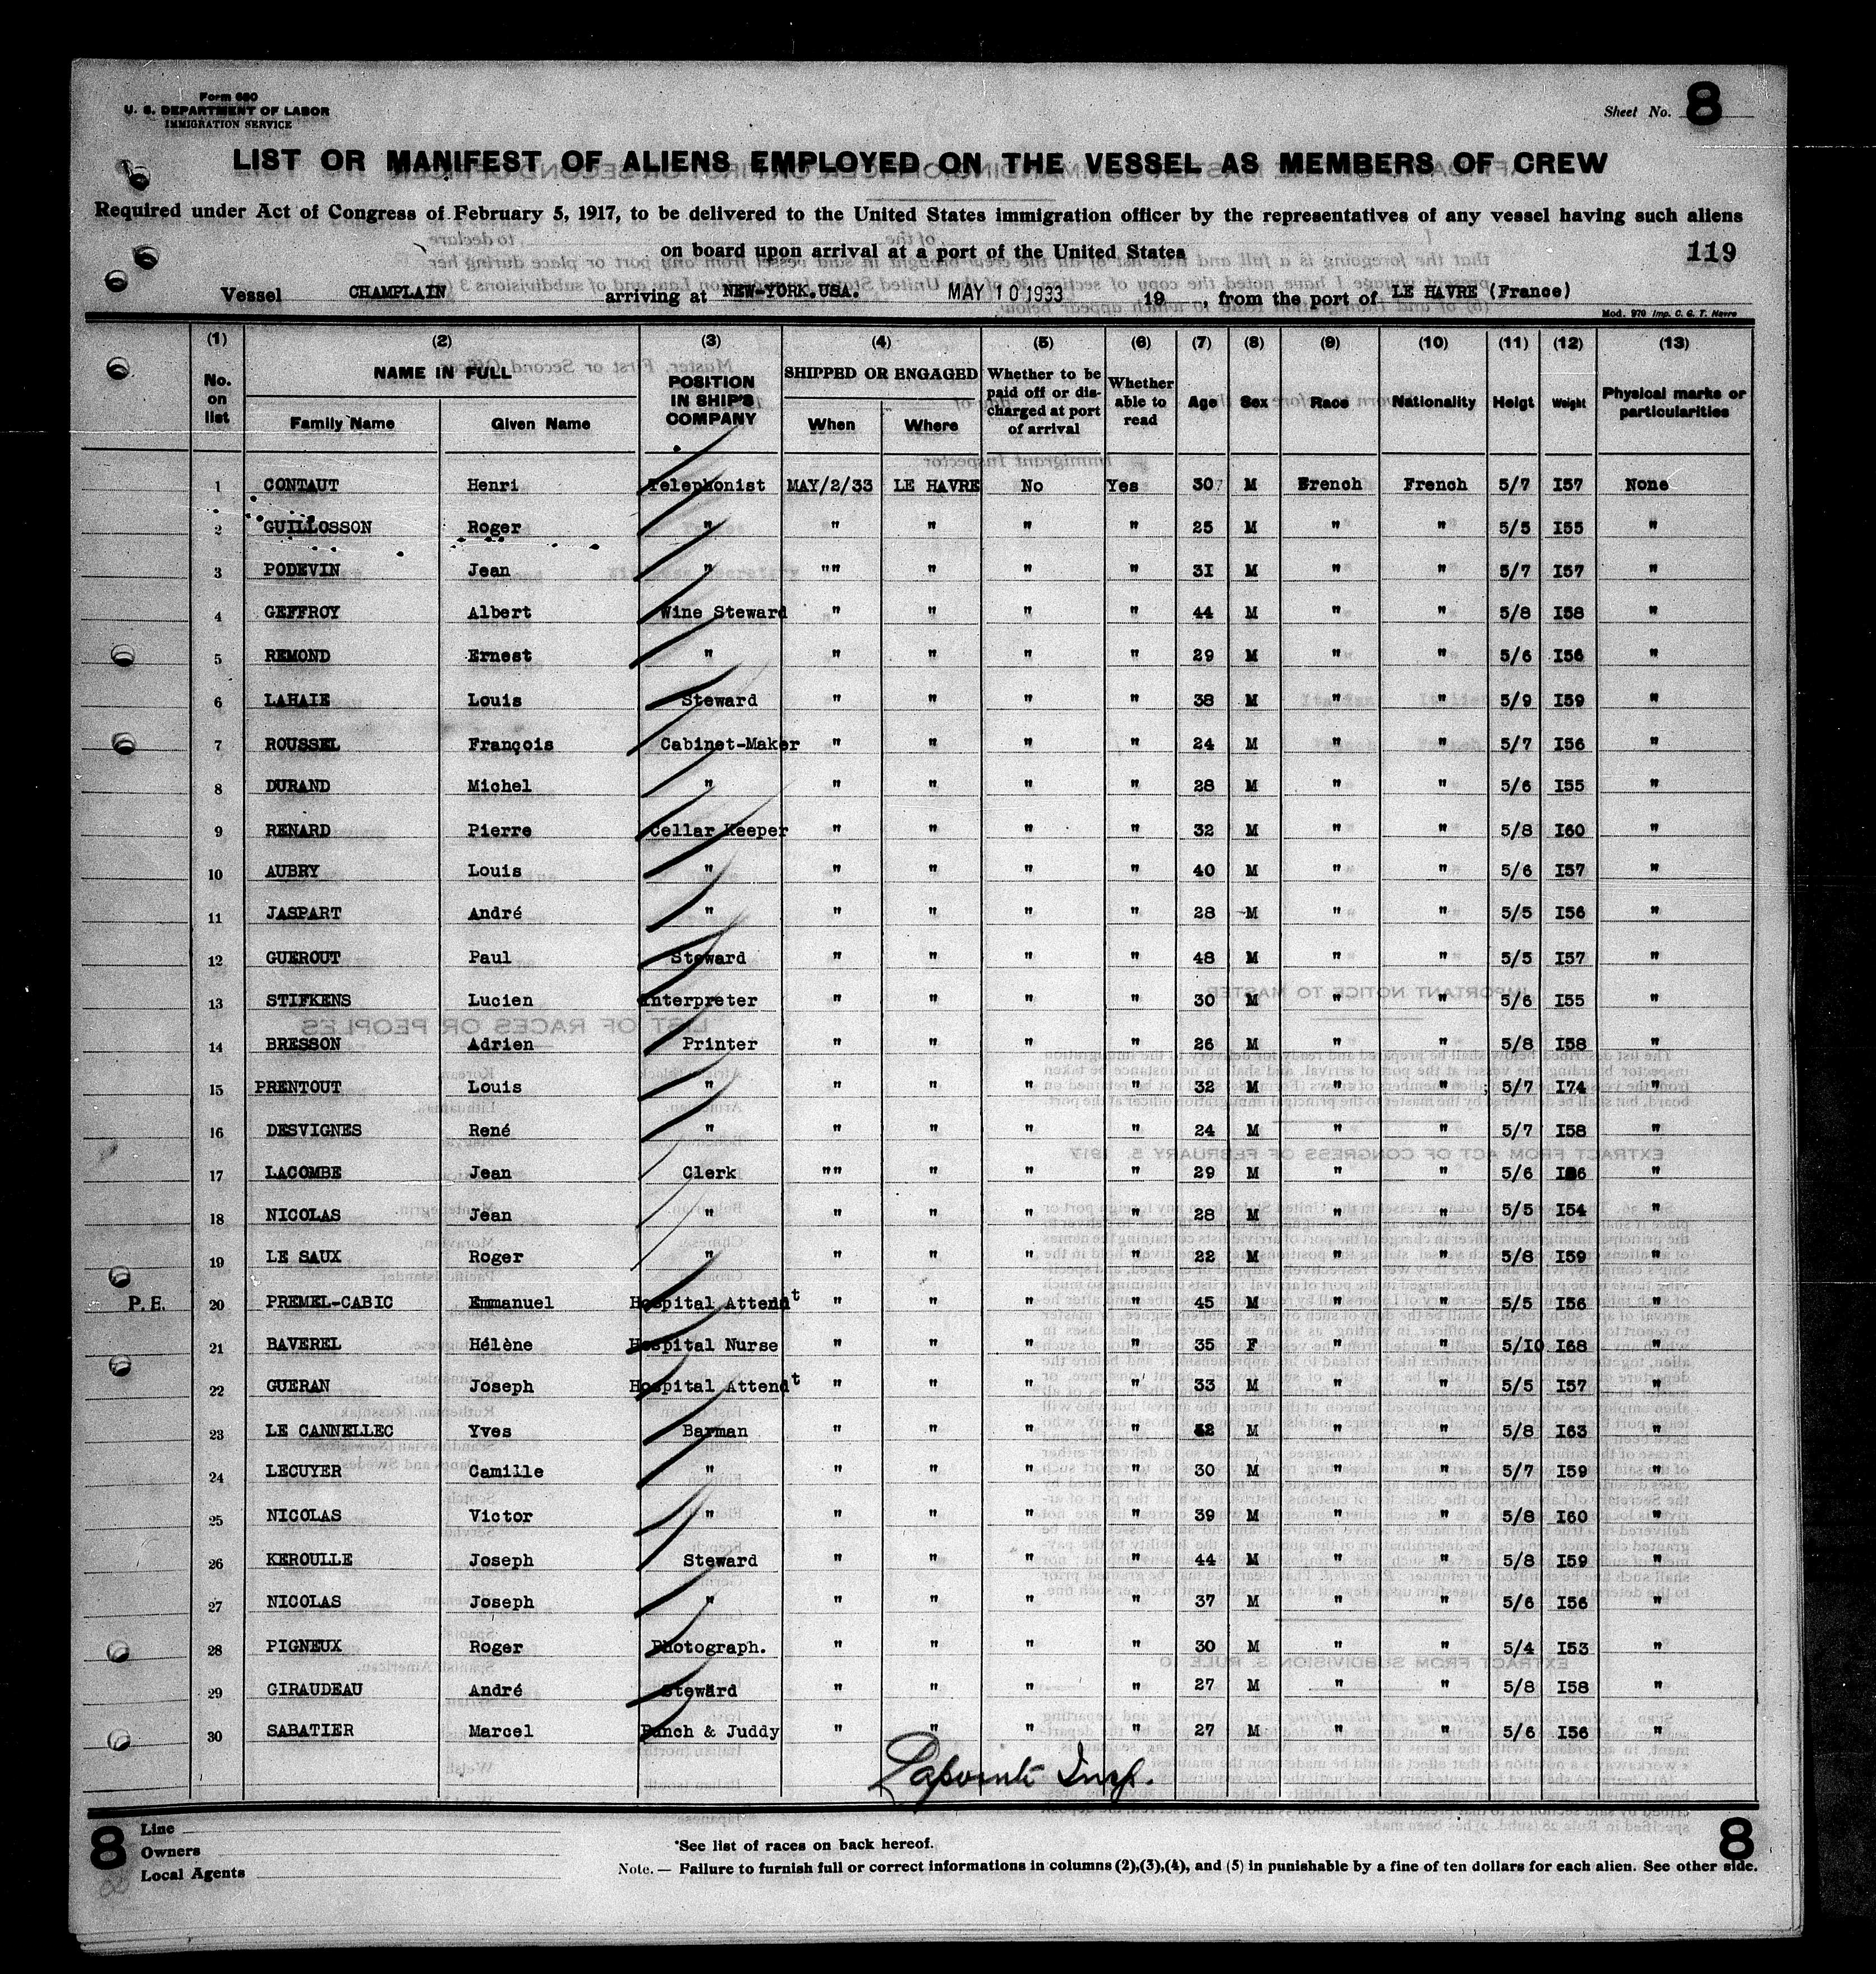 Form 680
U. S. DEPARTMENT OF LABOR
IMMIGRATION SERVICE
Sheet No. 8
LIST OR MANIFEST OF ALIENS EMPLOYED ON THE VESSEL AS MEMBERS OF CREW
Required under Act of Congress of February 5, 1917, to be delivered to the United States immigration officer by the representatives of any vessel having such aliens
on board upon arrival at a port of the United States
119
Vessel CHAMPLAIN arriving at NEW-YORK.USA. MAY 10 1933 19 , from the port of LE HAVRE (France)
Mod. 970 Imp. C. G. T. Havre
(1) (2) (3) (4) (5) (6) (7) (8) (9) (10) (11) (12) (13)
No. on list NAME IN FULL POSITION IN SHIP'S COMPANY SHIPPED OR ENGAGED Whether to be paid off or discharged at port of arrival Whether able to read Age Sex Race Nationality Heigt Weight Physical marks or particularities
Family Name Given Name When Where
1 CONTAUT Henri Telephonist MAY/2/33 LE HAVRE No Yes 30 M French French 5/7 I57 None
2 GUILLOSSON Roger " " " " " 25 M " " 5/5 I55 "
3 PODEVIN Jean " "" " " " 3I M " " 5/7 I57 "
4 GEFFROY Albert Wine Steward " " " " 44 M " " 5/8 I58 "
5 REMOND Ernest " " " " " 29 M " " 5/6 I56 "
6 LAHAIE Louis Steward " " " " 38 M " " 5/9 I59 "
7 ROUSSEL François Cabinet-Maker " " " " 24 M " " 5/7 I56 "
8 DURAND Michel " " " " " 28 M " " 5/6 I55 "
9 RENARD Pierre Cellar Keeper " " " " 32 M " " 5/8 I60 "
10 AUBRY Louis " " " " " 40 M " " 5/6 I57 "
11 JASPART André " " " " " 28 M " " 5/5 I56 "
12 GUEROUT Paul Steward " " " " 48 M " " 5/5 I57 "
13 STIFKENS Lucien Interpreter " " " " 30 M " " 5/6 I55 "
14 BRESSON Adrien Printer " " " " 26 M " " 5/8 I58 "
15 PRENTOUT Louis " " " " " 32 M " " 5/7 I74 "
16 DESVIGNES René " " " " " 24 M " " 5/7 I58 "
17 LACOMBE Jean Clerk "" " " " 29 M " " 5/6 "
18 NICOLAS Jean " " " " " 28 M " " 5/5 I54 "
19 LE SAUX Roger " " " " " 22 M " " 5/8 I59 "
P.E. 20 PREMEL-CABIC Emmanuel Hospital Attendt " " " " 45 M " " 5/5 I56 "
21 BAVEREL Hélène Hospital Nurse " " " " 35 F " " 5/I0 I68 "
22 GUERAN Joseph Hospital Attendt " " " " 33 M " " 5/5 I57 "
23 LE CANNELLEC Yves Barman " " " " M " " 5/8 I63 "
24 LECUYER Camille " " " " " 30 M " " 5/7 I59 "
25 NICOLAS Victor " " " " " 39 M " " 5/8 I60 "
26 KEROULLE Joseph Steward " " " " 44 M " " 5/8 I59 "
27 NICOLAS Joseph " " " " " 37 M " " 5/6 I56 "
28 PIGNEUX Roger Photograph. " " " " 30 M " " 5/4 I53 "
29 GIRAUDEAU André Steward " " " " 27 M " " 5/8 I58 "
30 SABATIER Marcel Punch & Juddy " " " " 27 M " " 5/6 I56 "
Lapointe Insp.
8 Line
Owners
Local Agents
*See list of races on back hereof.
Note. — Failure to furnish full or correct informations in columns (2),(3),(4), and (5) in punishable by a fine of ten dollars for each alien. See other side.
8